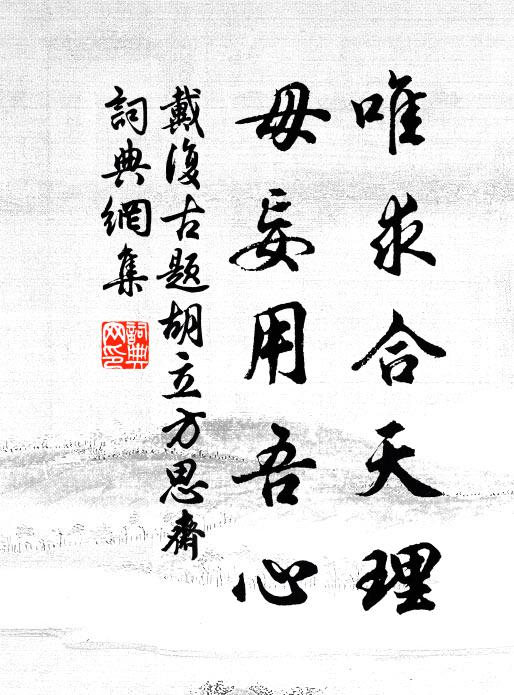 唯求合天理
毋妄用吾心
戴復古題胡立方思齋
詞典網集
詞典網印